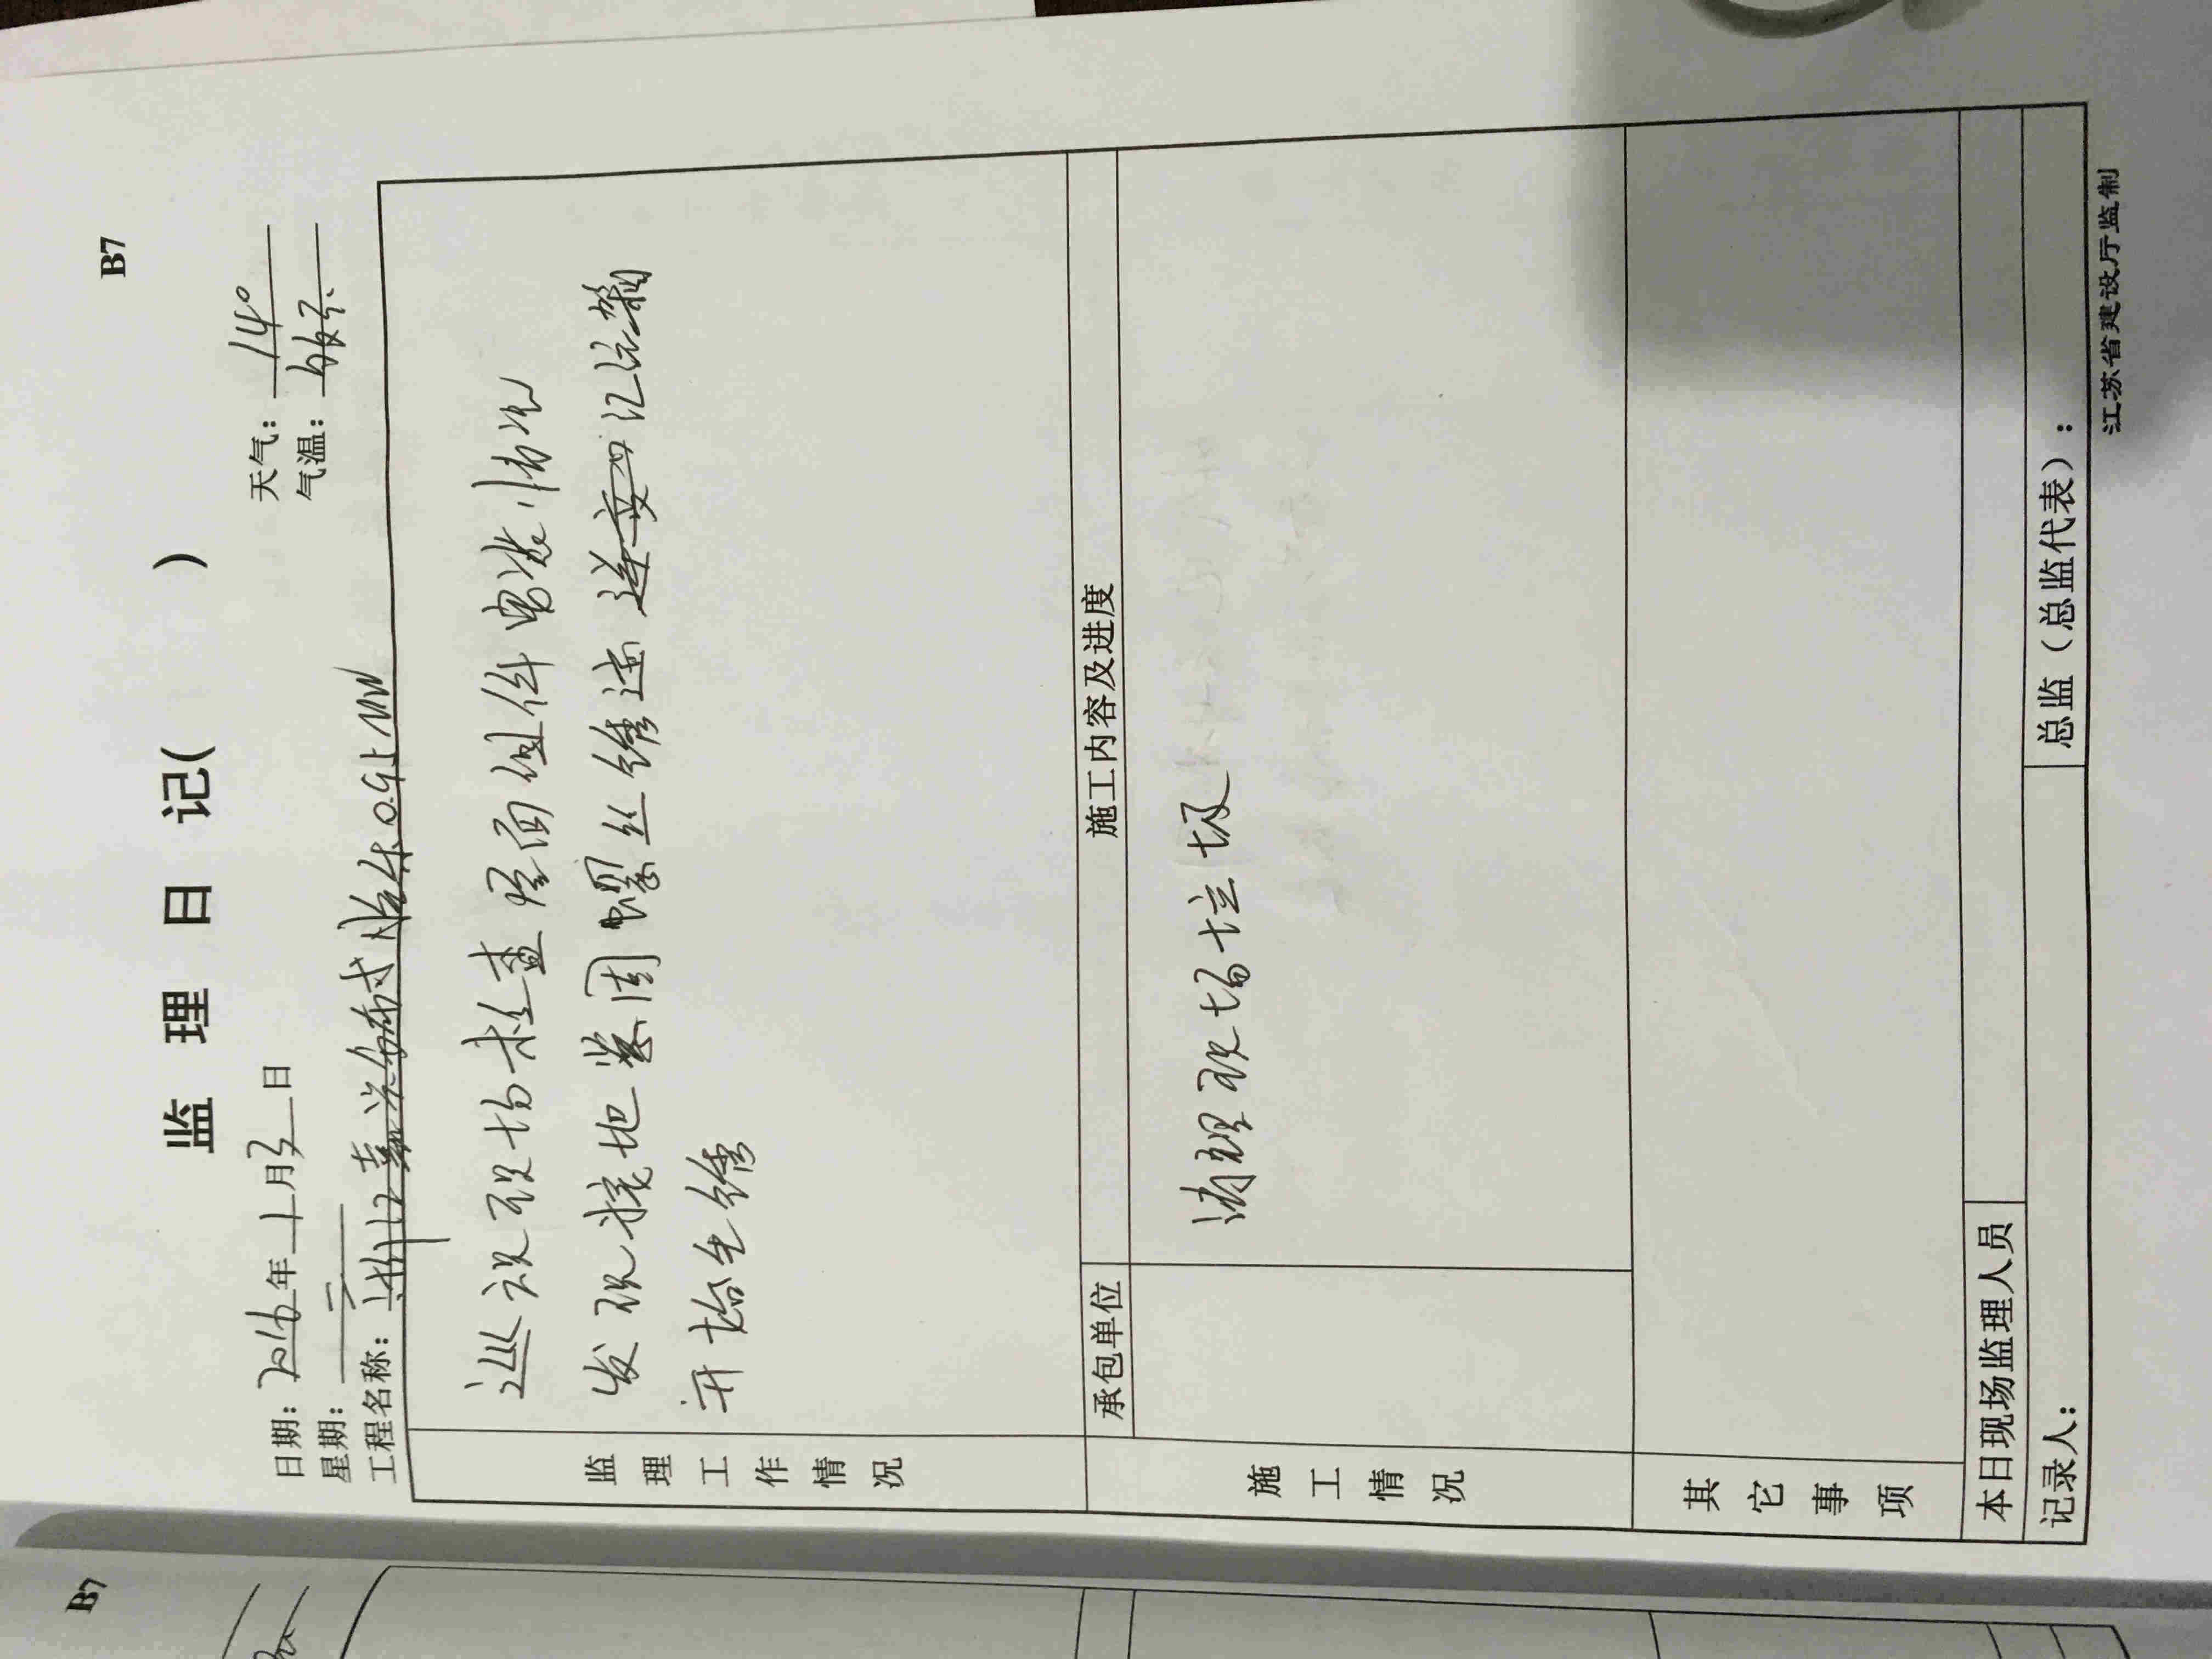 B7
监 理 日 记( )
日期: 2016年1月3日
天气: 14°
星期: 二
气温:
工程名称: 浙江嘉 0.95MW
监理工作情况
巡视现场检查屋面组件安装情况
发现接地紧固螺丝锈蚀 逆变 汇流箱
开始生锈
承包单位
施工内容及进度
施工情况
清理现场垃圾
其它事项
本日现场监理人员
记录人:
总监（总监代表）:
江苏省建设厅监制
B7